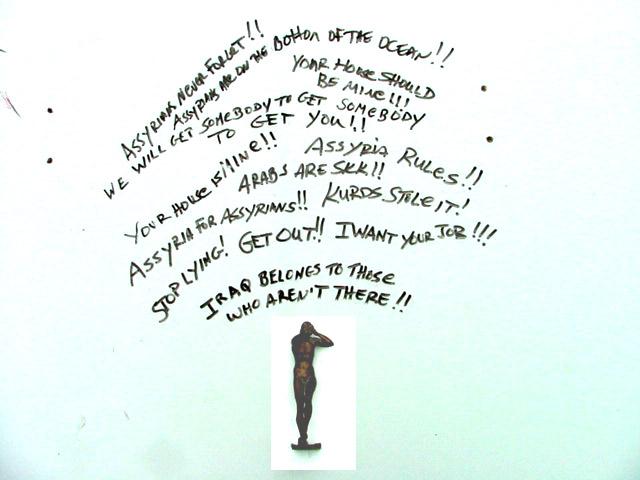 ASSYRIANS NEVER FORGET!!
ASSYRIANS ARE ON THE BOTTOM OF THE OCEAN!!
YOUR HOUSE SHOULD
BE MINE!!!
WE WILL GET SOMEBODY TO GET SOMEBODY
TO GET YOU!!
ASSYRIA RULES!!
YOUR HOUSE IS MINE!!
ARABS ARE SICK!!
KURDS STOLE IT!
ASSYRIA FOR ASSYRIANS!!
GET OUT!!
I WANT YOUR JOB!!!
STOP LYING!
IRAQ BELONGS TO THOSE
WHO AREN'T THERE!!